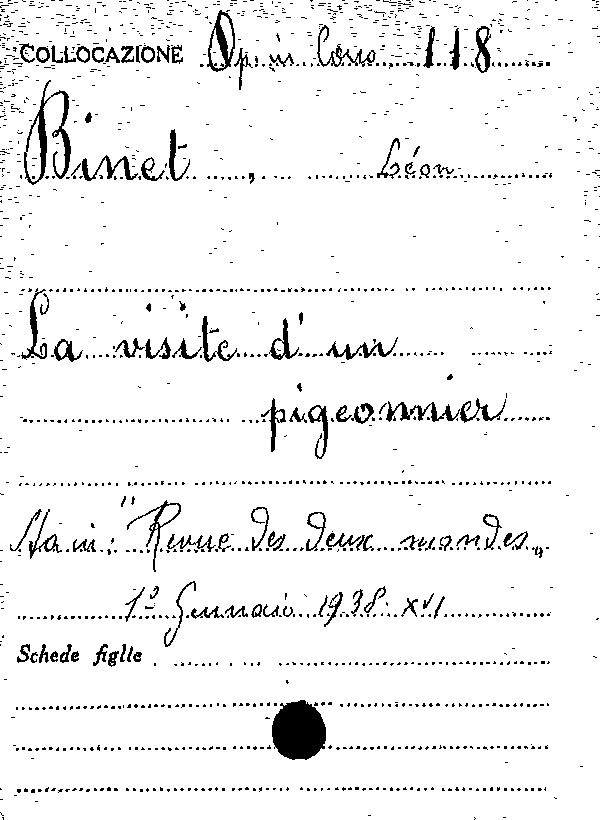 COLLOCAZIONE Op. in Corso 118
Binet, Léon
La visite d'un
pigeonnier
Sta in: "Revue des deux mondes„
1º Gennaio 1938. XVI
Schede figlie